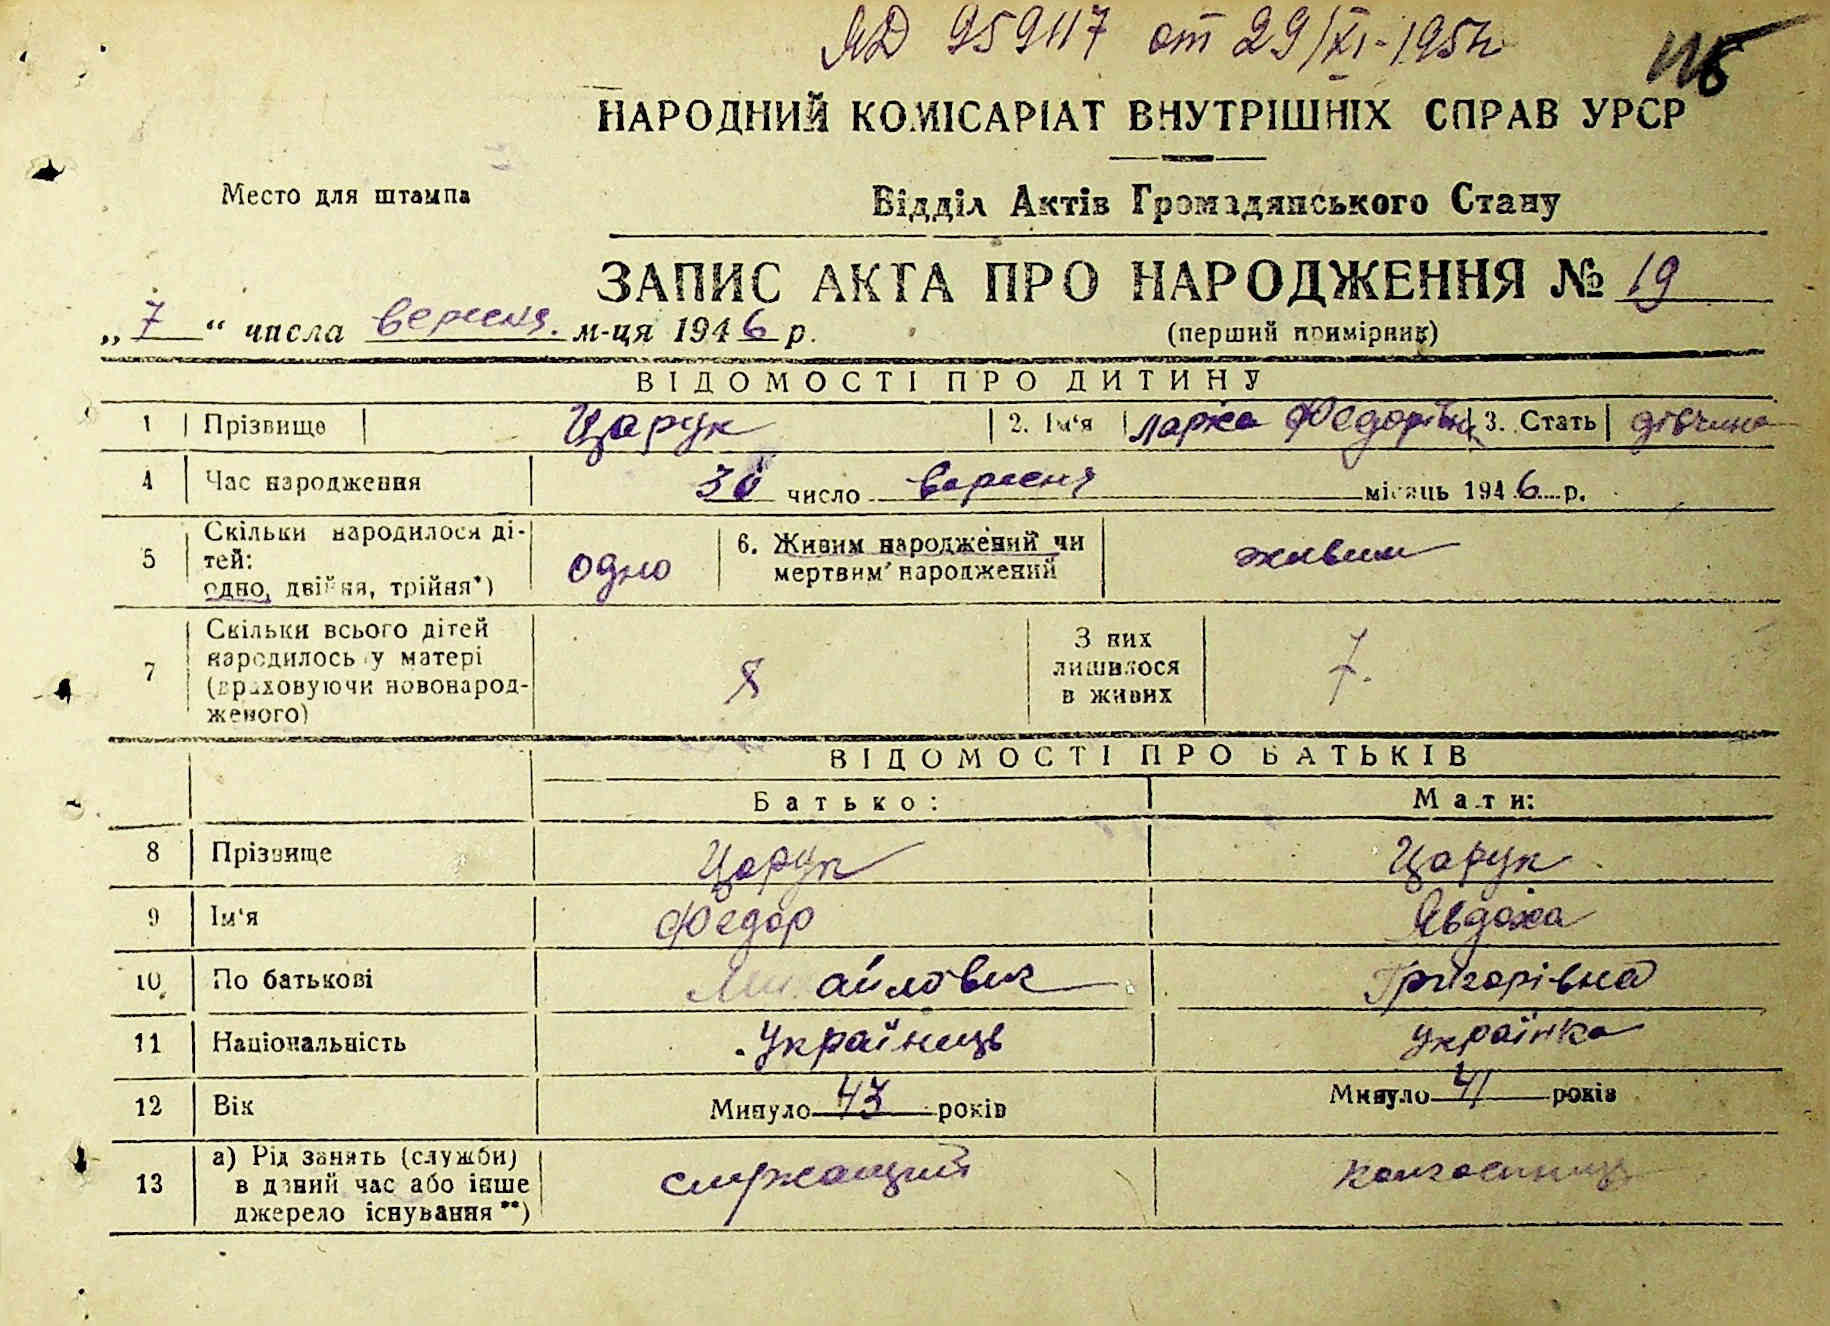 ЯД 959117 от 29/XI-195
НАРОДНИЙ КОМІСАРІАТ ВНУТРІШНІХ СПРАВ УРСР
Место для штампа
Відділ Актів Громадянського Стану
ЗАПИС АКТА ПРО НАРОДЖЕННЯ № 19
„ 7 “ числа вересня м-ця 1946 р.
(перший примірник)
ВІДОМОСТІ ПРО ДИТИНУ
1 Прізвище Царук 2. Ім‘я Федорівна 3. Стать дівчина
4 Час народження 30 число вересня місяць 1946 р.
5 Скільки народилося ді-
тей:
одно, двійня, трійня*) одно
6. Живим народжений чи
мертвим народжений живим
7 Скільки всього дітей
народилось у матері
(враховуючи новонарод-
женого) 8
З них
лишилося
в живих 7.
ВІДОМОСТІ ПРО БАТЬКІВ
Батько: Мати:
8 Прізвище Царук Царук
9 Ім‘я Федор Явдоха
10 По батькові Михайлович Григорівна
11 Національність Українець українка
12 Вік Минуло 43 років Минуло 41 років
13 а) Рід занять (служби)
в даний час або інше
джерело існування**) служащий колгоспниця